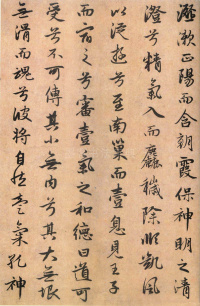 瀣漱正陽而含朝霞保神明之清
澄兮精氣入而麤穢除順凱風
以從遊兮至南巢而壹息見王子
而宿之兮審壹氣之和德曰道可
受兮不可傳其小無內兮其大無垠
無滑而魂兮彼將自然壹氣孔神